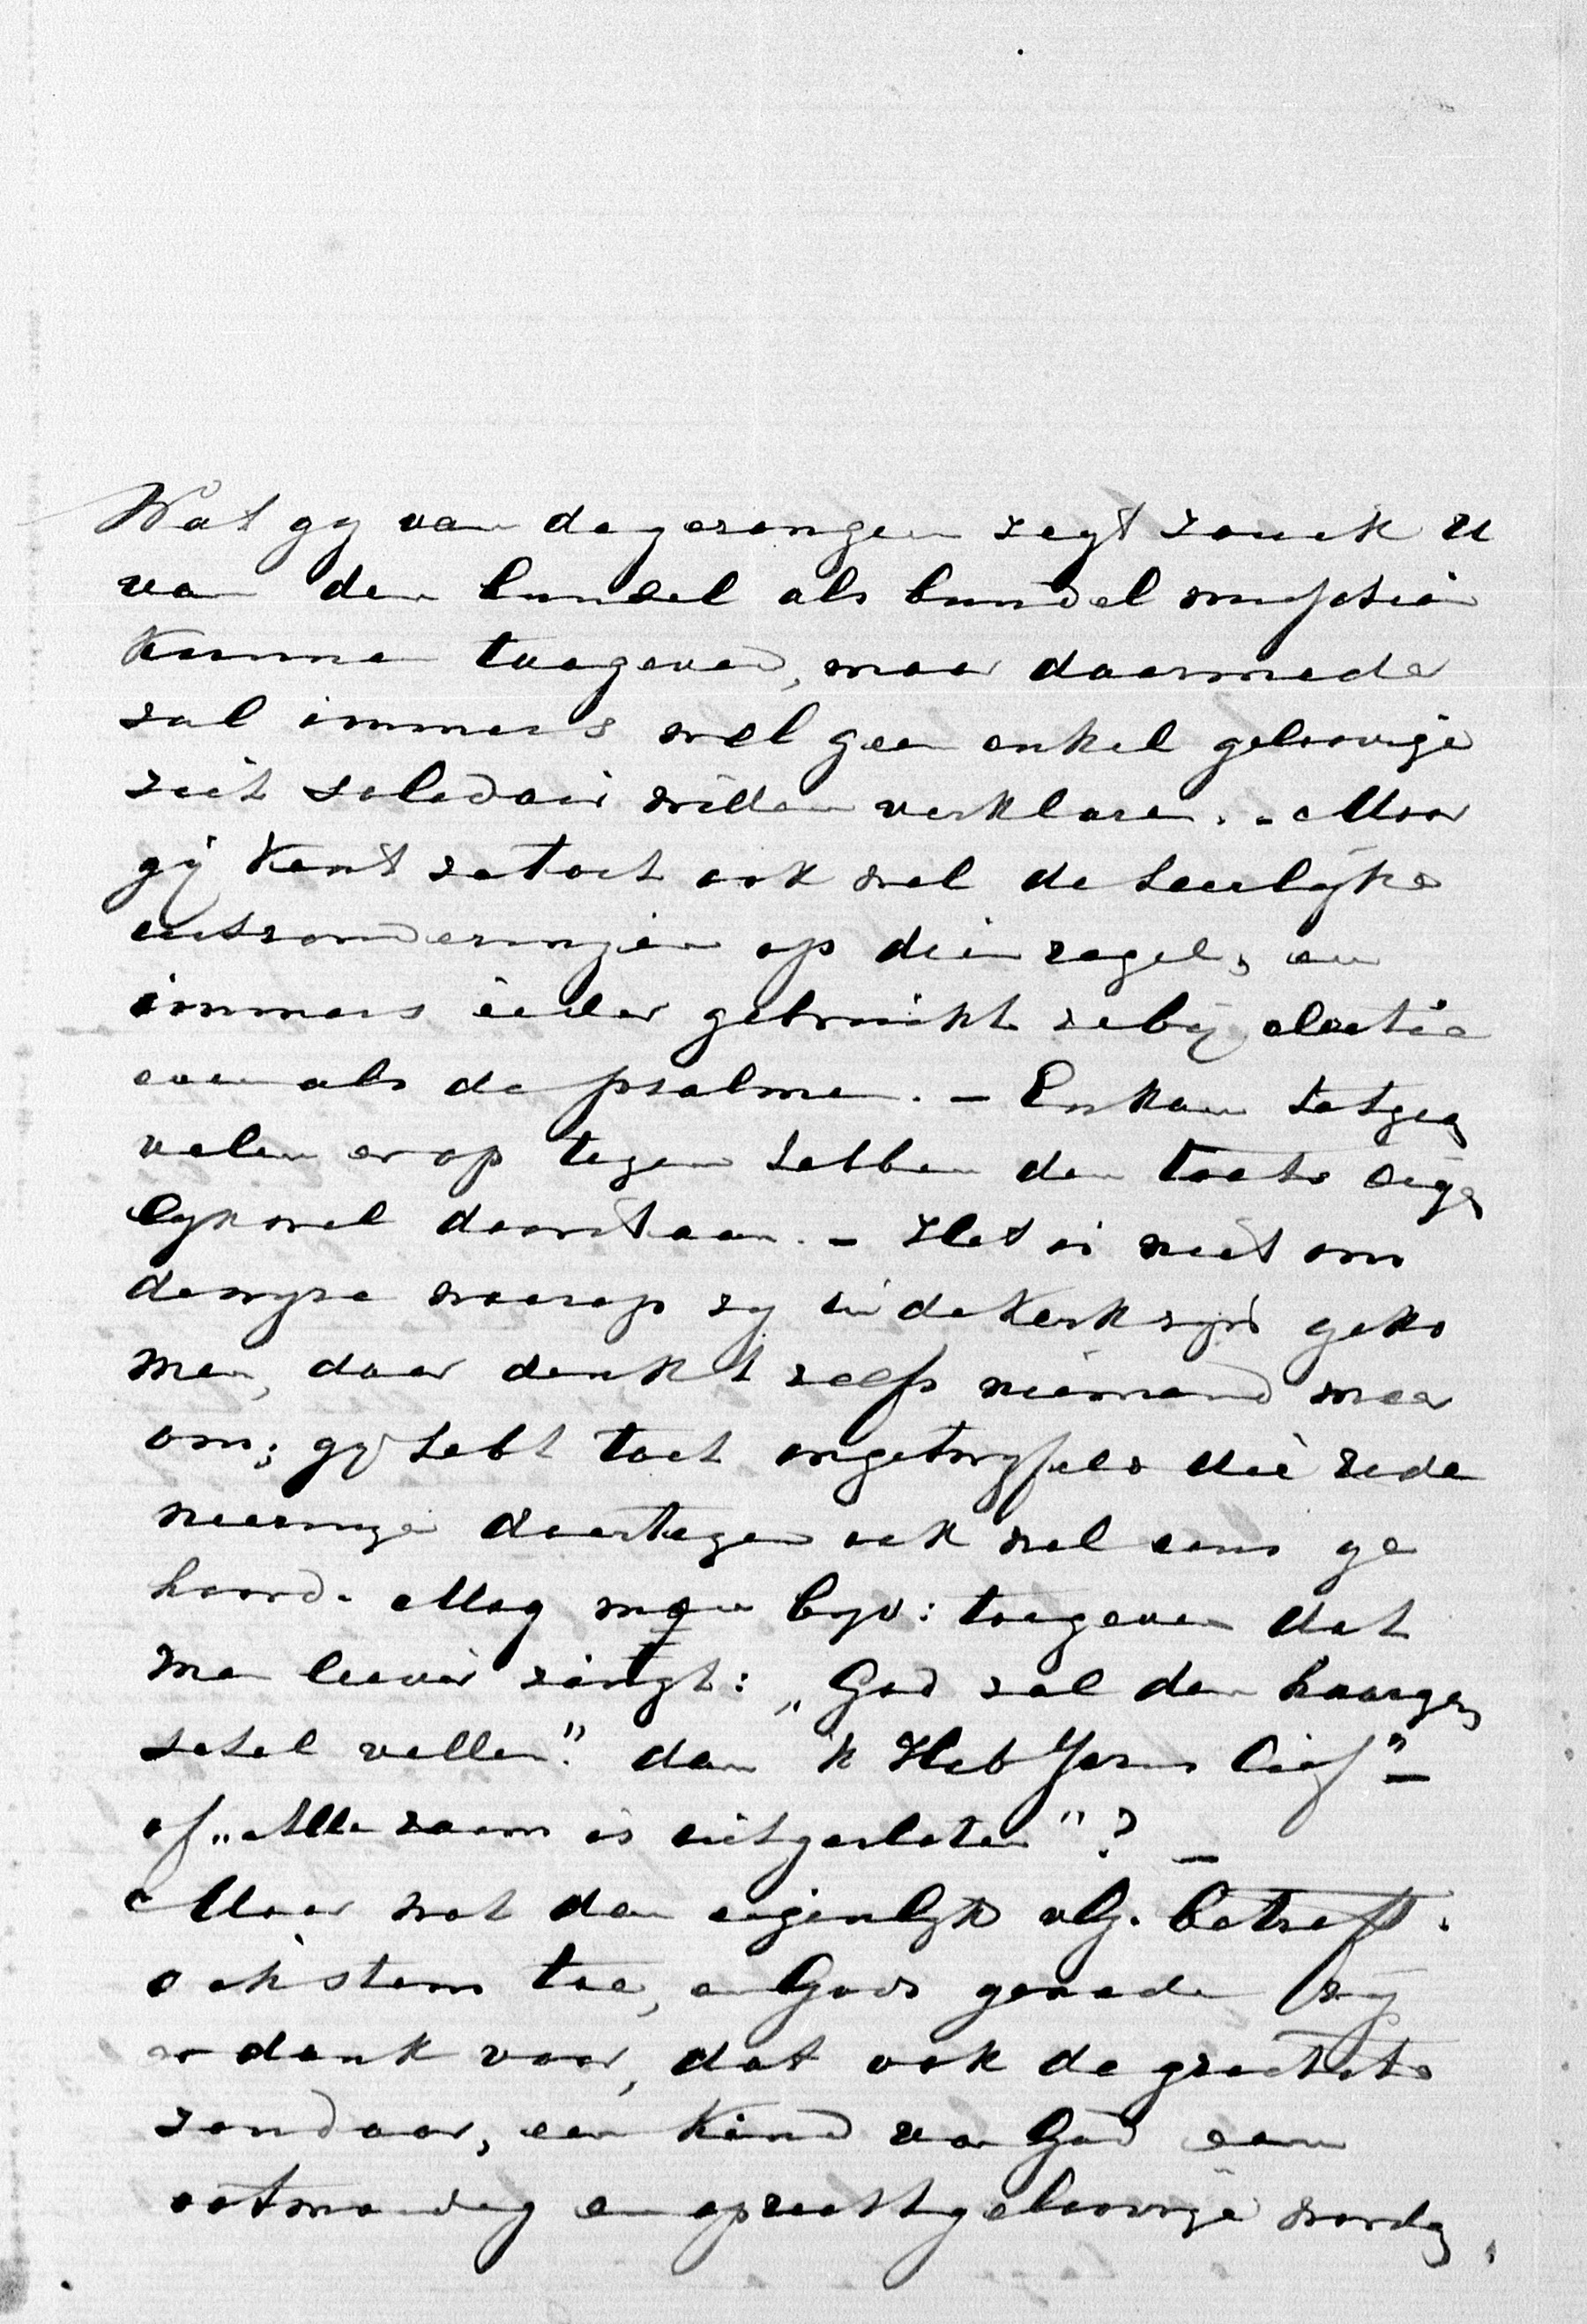 Wat gy van de gezangen zegt zou ik U
van den bundel als bundel misschien
Kunnen toegeven, maar daarmede
zal immers wel geen enkel geloovige
zich solidair willen verklaren. - Maar
gij Kent ze toch ook wel de heerlijke
uitzonderingen op dien regel, en
immers ieder gebruikt ze bij electie
even als de psalmen. - En kan hetgeen
velen er op tegen hebben den toets eigen
lyk wel doorstaan. - Het is niet om
de wyze waarop zy in de Kerk zijn geko
men, daar denkt zelfs niemand meer
om; gij hebt toch ongetwyfeld die rede
neeringen daartegen ook wel eens ge
hoord. Mag men byv: toegeven dat
men liever zingt: „God zal den haarigen
schedel vellen". dan 'k Heb Jezus lief" -
of „Alle roem is uitgesloten"? -
Maar wat den eigenlyk betreft.
o ik stem toe, en Gods genade zij
er dank voor, dat ook de grootste
zondaar, een Kind van God een
ootmoedig en oprecht geloovige wordt,